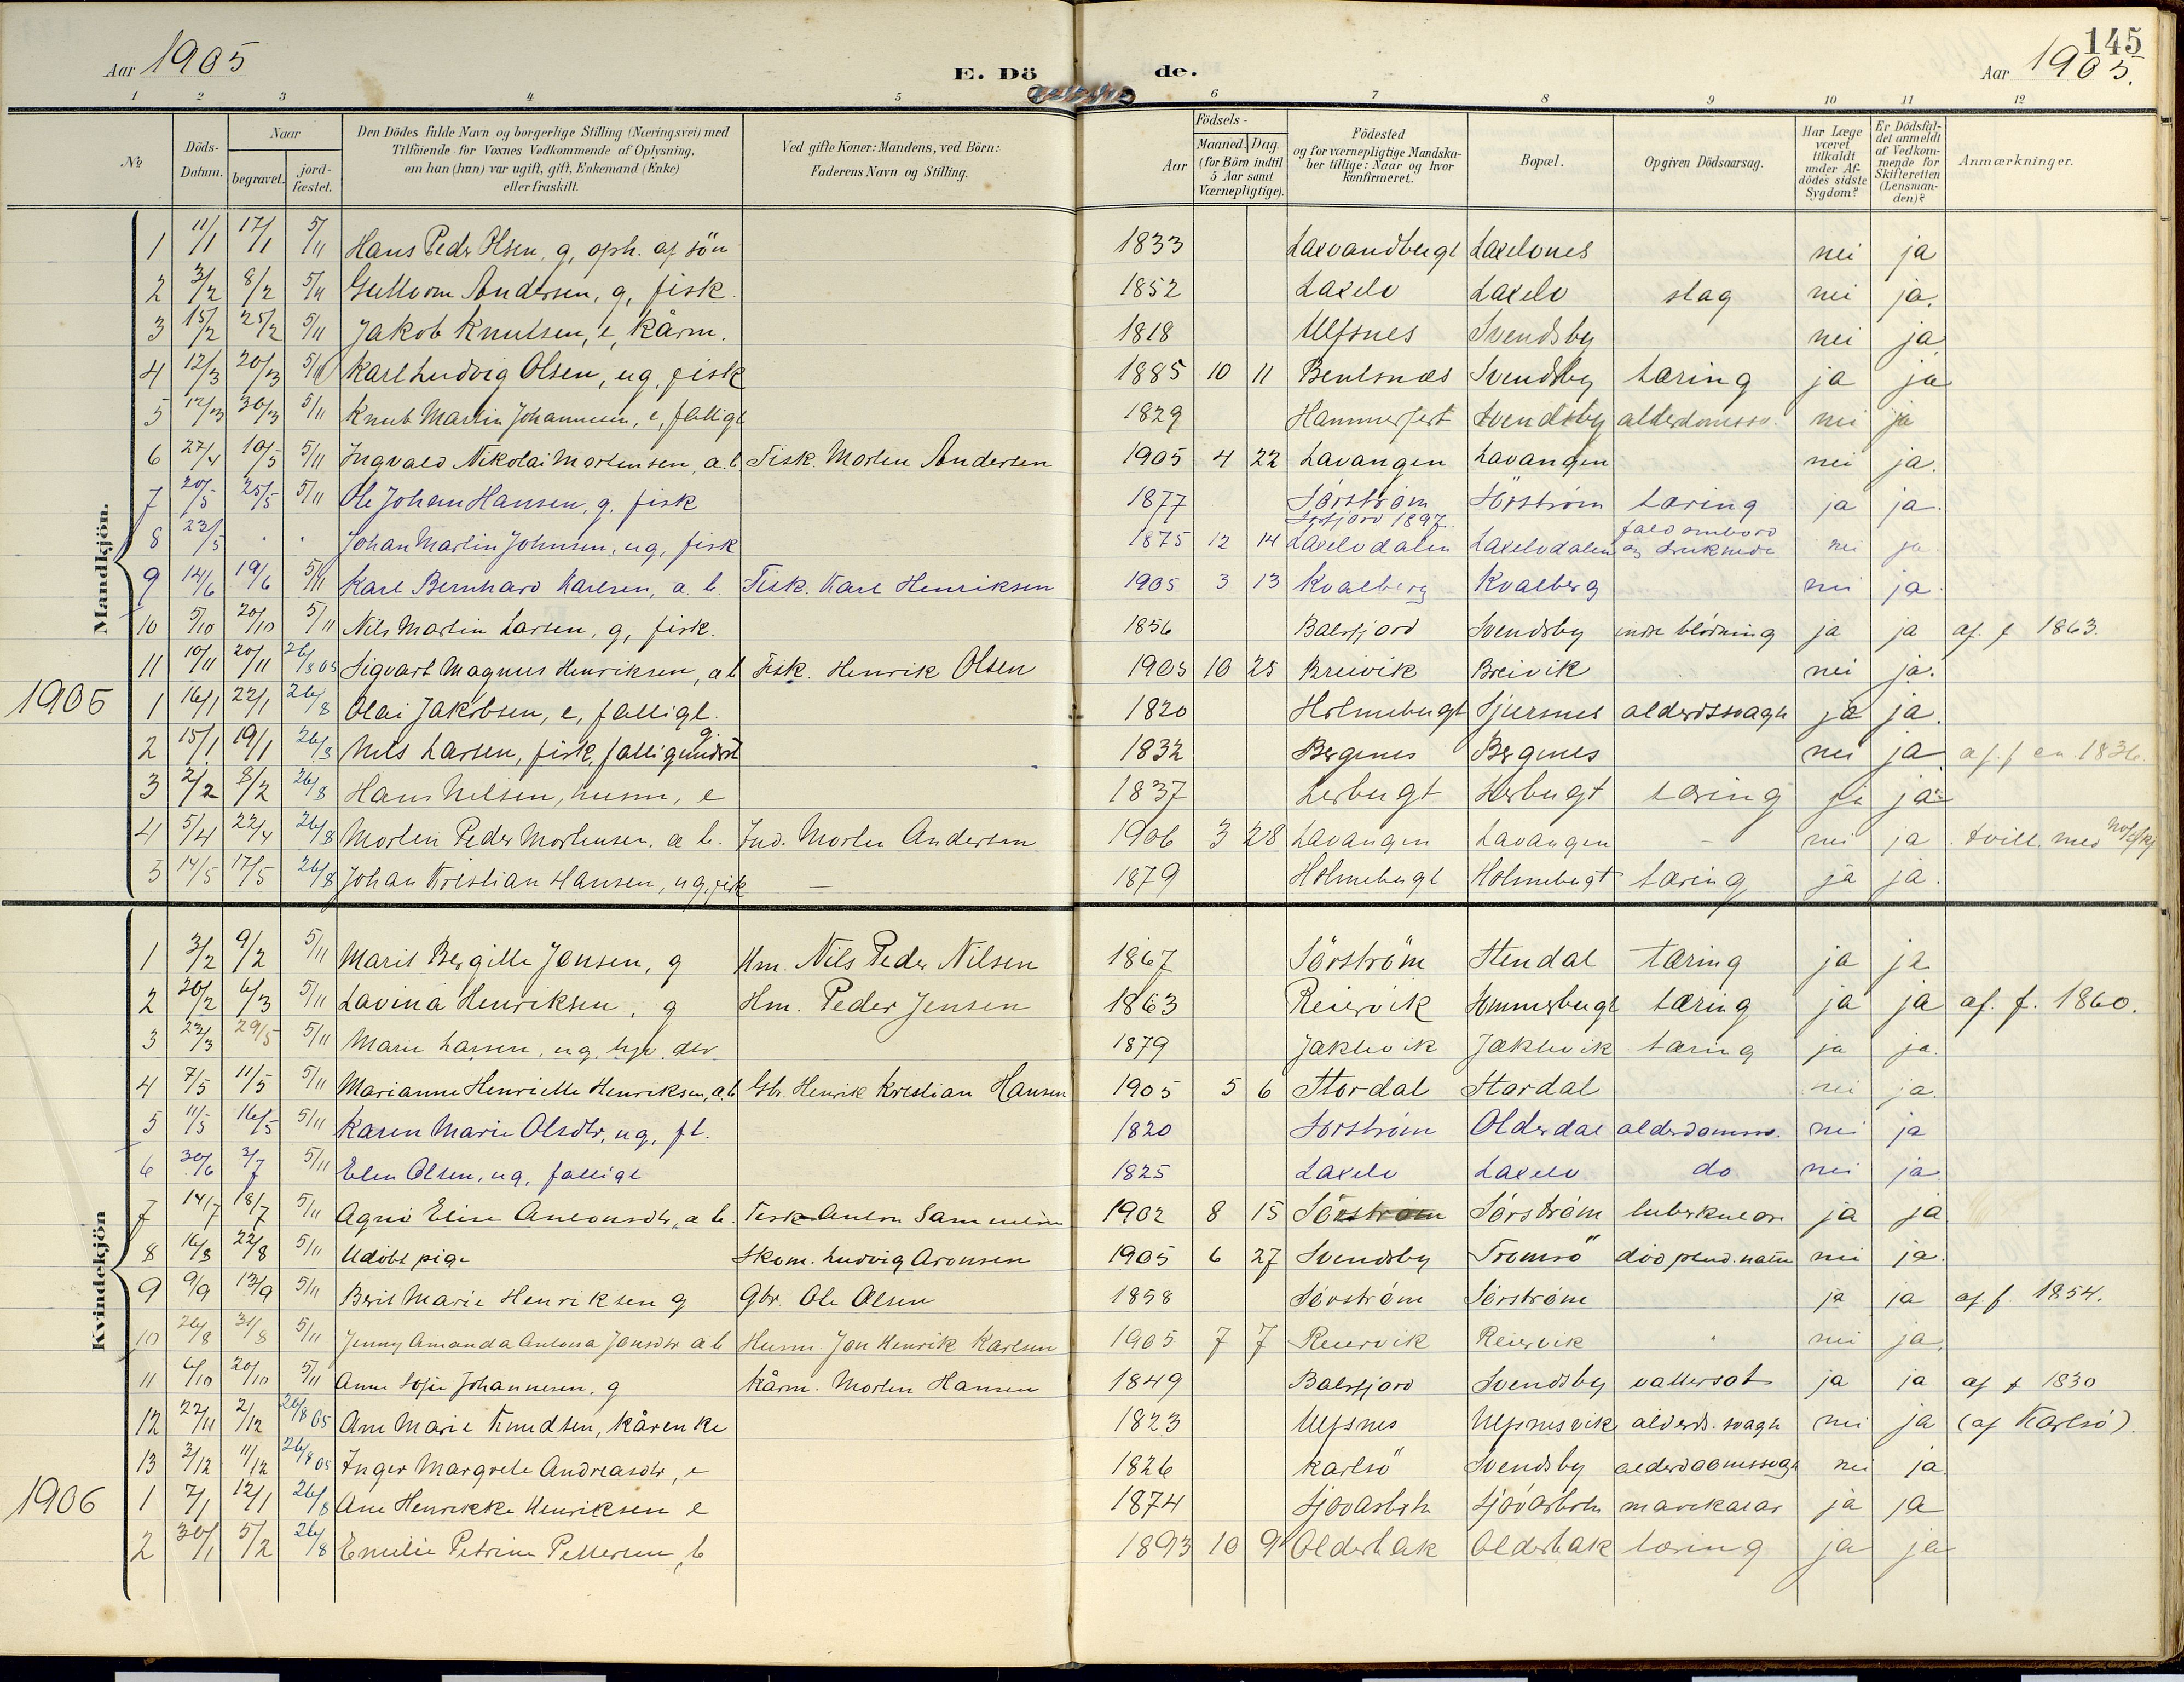 145
Aar 1905
E. Döde.
Aar 1905.
1 2 3 4 5 6 7 8 9 10 11 12
No
Döds-Datum.
Naar
begravet.
jord-fæstet.
Den Dödes fulde Navn og borgerlige Stilling (Næringsvei) med
Tilföiende for Voxnes Vedkommende af Oplysning,
om han (hun) var ugift, gift, Enkemand (Enke)
eller fraskilt.
Ved gifte Koner: Mandens, ved Börn:
Faderens Navn og Stilling.
Födsels-
Aar
Maaned. Dag.
(for Börn indtil
5 Aar samt
Værnepligtige).
Födested
og for værnepligtige Mandska-
ber tillige: Naar og hvor
konfirmeret.
Bopæl.
Opgiven Dödsaarsag.
Har Læge
været
tilkaldt
under Af-
dödes sidste
Sygdom?
Er Dödsfal-
det anmeldt
af Vedkom-
mende for
Skifteretten
(Lensman-
den)?
Anmærkninger.
Mandkjön.
1 11/1 17/1 5/11 Hans Peder Olsen, g, oph. af sön 1833 Laxvandbugt Laxelvnes nei ja
2 3/2 8/2 5/11 Guttorm Andersen, g, fisk. 1852 Laxelv Laxelv slag nei ja.
3 15/2 25/2 5/11 Jakob Knutsen, e, kårm. 1818 Ulfsnes Svendsby nei ja
4 12/3 20/3 5/11 Karl Ludvig Olsen, ug, fisk 1885 10 11 Bentsnæs Svendsby tæring ja ja
5 17/3 30/3 5/11 Knut Martin Johannesen, e, fattigl 1829 Hammerfest Svendsby alderdomssv. nei ja
6 27/4 10/5 5/11 Ingvald Nikolai Mortensen, a.b Fisk. Morten Andersen 1905 4 22 Lavangen Lavangen nei ja.
7 20/5 25/5 5/11 Ole Johan Hansen, g, fisk 1877 Sörström Sörström tæring ja ja.
8 23/5 . . Johan Martin Johnsen, ug, fisk 1875 12 14 Sörfjord 1897. Laxelvdalen Laxelvdalen fald ombord og druknede nei ja
9 14/6 19/6 5/11 Karl Bernhard Karlsen, a. b. Fisk. Karl Henriksen 1905 3 13 Kvalberg Kvalberg nei ja.
10 5/10 20/10 5/11 Nils Martin Larsen, g, fisk. 1856 Balsfjord Svendsby indre blödning ja ja af. f 1863.
11 10/11 20/11 26/8 05 Sigvart Magnus Henriksen, a b Fisk. Henrik Olsen 1905 10 25 Breivik Breivik nei ja.
1906 1 16/1 22/1 26/8 Olai Jakobsen, e, fattigl. 1820 Holmebugt Sjursnes alderdssvagh ja ja.
2 15/1 19/1 26/8 Nils Larsen, fisk, fattigunderst g. 1832 Bergnes Bergnes nei ja af. f en. 1836.
3 2/2 8/2 26/8 Hans Nilsen, husm, e 1837 Lerbugt Lerbugt tæring ja ja
4 5/4 22/4 26/8 Morten Peder Mortensen, a b. Ind. Morten Andersen 1906 3 28 Lavangen Lavangen - nei ja tvill. med
3 14/5 17/5 26/8 Johan Kristian Hansen, ug, fisk — 1879 Holmebugt Holmebugt tæring ja ja.
Kvindekjön
1 3/2 9/2 5/11 Marit Bergitte Jonsen, g Hm. Nils Peder Nilsen 1867 Sörström Stendal tæring ja ja
2 20/2 6/3 5/11 Lavina Henriksen, g Hm. Peder Jensen 1863 Reiervik Sommerbugt tæring ja ja af. f. 1860.
3 23/3 29/5 5/11 Marie Larsen, ug, 1879 Jaklevik Jaklevik tæring ja ja.
4 7/5 11/5 5/11 Marianne Henriette Henriksen, a.b Gbr. Henrik Kristian Hansen 1905 5 6 Stordal Stordal nei ja.
5 11/5 16/5 5/11 Karen Marie Olsdtr, ug, fl. 1820 Sörström Olderdal alderdomssv. nei ja
6 30/6 3/7 5/11 Elen Olsen, ug, fattigl 1825 Laxelv Laxelv do nei ja
7 14/7 18/7 5/11 Agna Elise Antonsdtr, a b. Fisk Anton Samuelsen 1902 8 15 Sörström Sörström tuberkulose ja ja
8 16/8 22/8 5/11 Udöbt pige Skom. Ludvig Aronsen 1905 6 27 Svendsby Tromsö nei ja.
9 9/9 13/9 5/11 Berit Marie Henriksen g Gbr. Ole Olsen 1858 Sörström Sörström ja ja af. f. 1854.
10 26/8 31/8 5/11 Jenny Amanda Antona Jonsdtr a b Husm. Jon Henrik Karlsen 1905 7 7 Reiervik Reiervik nei ja.
11 6/10 20/10 5/11 Anne Sofie Johannesen, g Kårm. Morten Hansen 1849 Balsfjord Svendsby vattersot ja ja af f 1830
12 22/11 2/12 26/8 05 Ane Marie Knudsen, kårenke 1823 Ulfsnes Ulfsnesvik alderds. svagh nei ja (af Karlsö).
13 3/12 11/12 26/8 05 Inger Margrete Andreasdtr, e 1826 Karlsö Svendsby alderdomssvagh nei ja.
1906 1 7/1 12/1 26/8 Ane Henrikke Henriksen e 1874 ja ja
2 30/1 5/2 26/8 Emilie Petrine Pettersen, b 1893 10 9 Olderbak Olderbak tæring ja ja